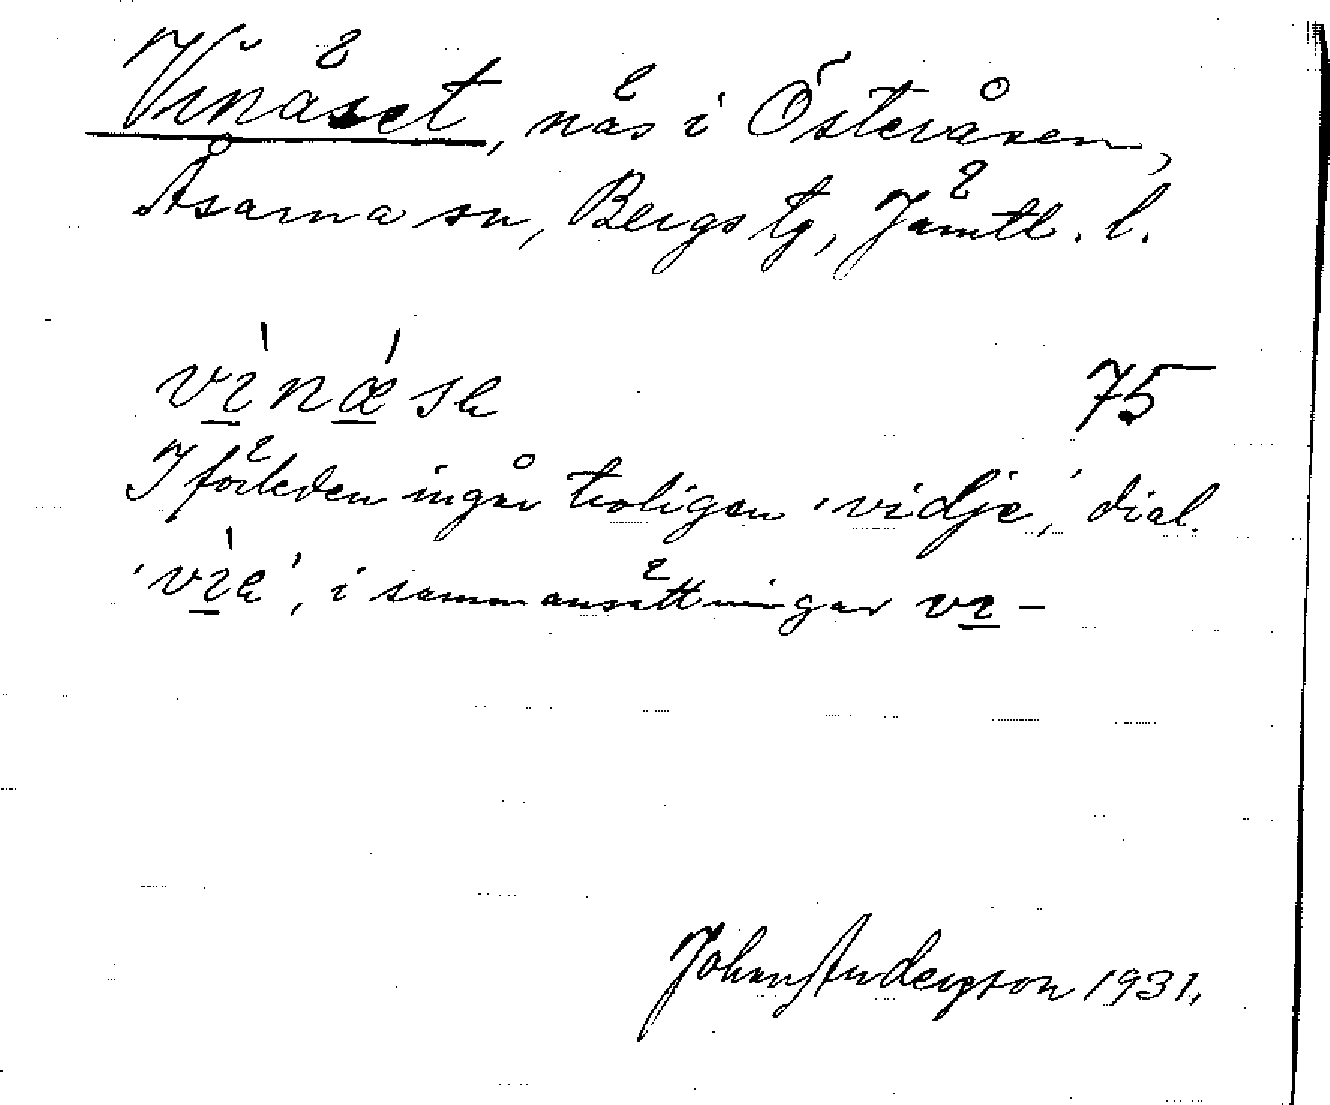 Vinäset, näs i Österåsen,
Åsarna sn, Bergs tg, Jämtl. l.
vínǽse 75
I förleden ingår troligen 'vidje', dial.
'víe', i sammansättningar vi-
Johan Anderson 1931.